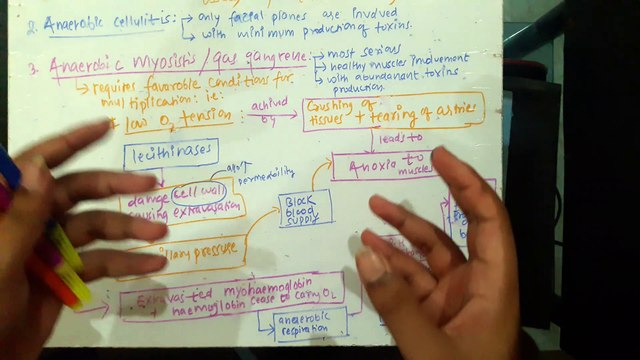 2. Anaerobic cellulitis: → only facial planes are involved
→ with minimum production of toxins.
3. Anaerobic Myosistis/gas gangrene: → most serious
→ healthy muscles involvement
→ with abundanant toxins
production.
↳ requires favorable conditions for
multiplication: ie:
low O2 tension: achived
by
Crushing of
tissues + tearing of artries
leads to
Anoxia to
muscles
lecithinases
permeability
damge cell wall
causing extravasation
pressuse
Block
blood
supply
Extravasted myohaemoglobin
+ haemoglobin cease to carry O2
anaerobic
respiration